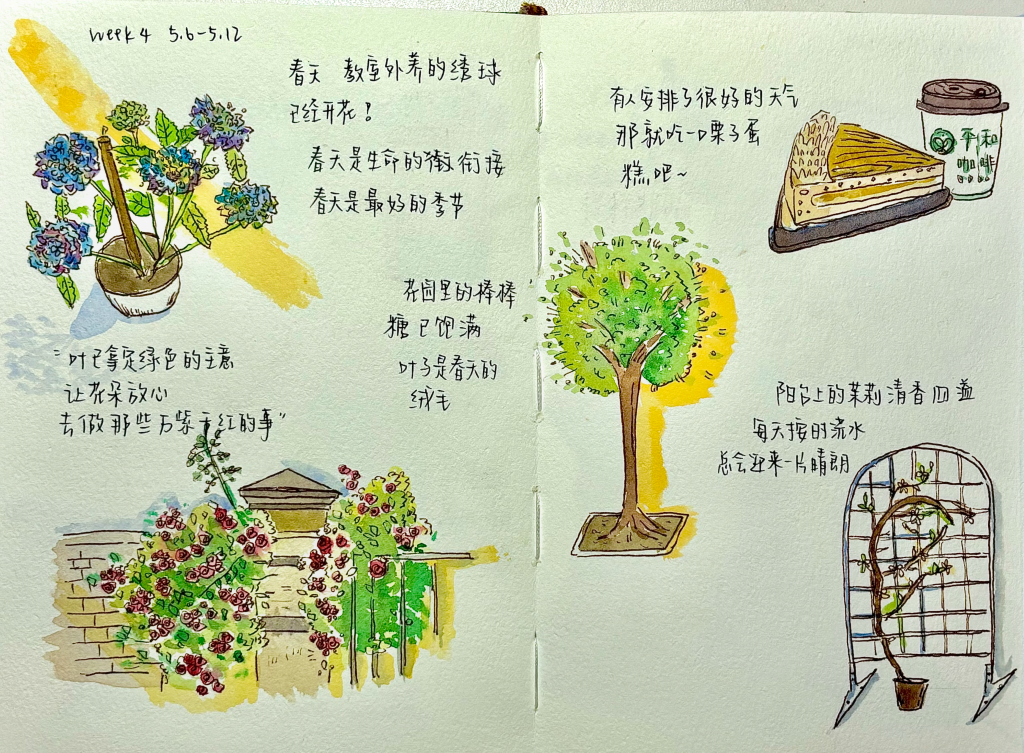 week 4 5.6-5.12
春天 教室外养的绣球
已经开花！
春天是生命的衔接
春天是最好的季节
"叶已拿定绿色的主意
让花朵放心
去做那些万紫千红的事"
花园里的棒棒
糖已饱满
叶子是春天的
绒毛
有人安排了很好的天气
那就吃一口栗子蛋
糕吧~
平和
咖啡
阳台上的茉莉清香四溢
每天按时浇水
总会迎来一片晴朗